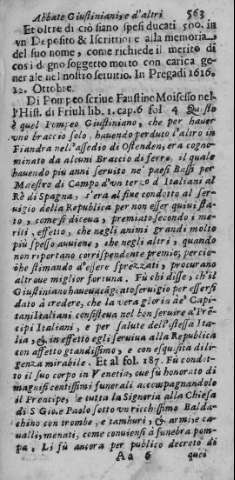 Abbate Giustiniani, e d'altri 563
Et oltre di ciò siano spesi ducati 500. in
vn Deposito & Iscrittione alla memoria
del suo nome, come richiede il merito di
così degno soggetto morto con carica ge-
nerale nel nostro seruitio. In Pregadi 1616.
22. Ottobre.
Di Pompeo scriue Faustino Moisesso nel-
l'Hist. di Friuli lib. 1. cap. 6 fol. 4 Questo
è quel Pompeo Giustiniano, che per hauer
vno braccio solo, hauendo perduto l'altro in
Fiandra nell'assedio di Ostenden, era cogno-
minato da alcuni Braccio di ferro, il quale
hauendo più anni seruito ne' paesi Bassi per
Maestro di Campo d'vn terzo d'Italiani al
Rè di Spagna, s'era al fine condotto al ser-
uigio della Republica per non esser quiui sta-
to, come si diceua, premiato secondo i me-
riti, effetto, che negli animi grandi molto
più spesso auuiene, che negli altri, quando
non riportano corrispondente premio; perció-
che stimando d'essere sprezzati, procurano
altroue miglior fortuna. Fù chi disse, ch'il
Giustiniano haueua cãgiato seruigio per essersi
dato à credere, che la vera gloria de' Capi-
tani Italiani consisteua nel bon seruire a' Prê-
cipi Italiani, e per salute dell'istessa Ita-
lia, & in effetto egli seruiua alla Republica
con affetto grandissimo, e con esquisita dili-
genza mirabile. Et al fol. 187. Fù condot-
to il suo corpo in Venetia, oue fù honorato di
magnificentissimi funerali accompagnandolo
il Prencipe, e tutta la Signoria alla Chiesa
di S Gio. e Paolo sotto vn ricchissimo Balda-
chino con trombe, e tamburi, & armi, e ca-
ualli, menati, come conuiensi à funebra pom-
pa. Li fù ancora per publico decreto di
Aa 6 quei